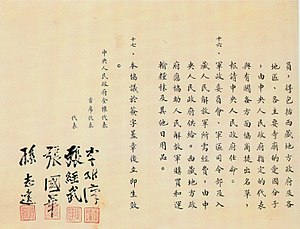 員，得包括西藏地方政府及各
地區、各主要寺廟的愛國分子
，由中央人民政府指定的代表
與有關各方面協商提出名單，
報請中央人民政府任命。
十六、軍政委員會、軍區司令部及入
藏人民解放軍所需經費，由中
央人民政府供給。西藏地方政
府應協助人民解放軍購買和運
輸糧秣及其他日用品。
十七、本協議於簽字蓋章後立即生效
中央人民政府全權代表
首席代表
代表
李維漢
張經武
張國華
孫志遠